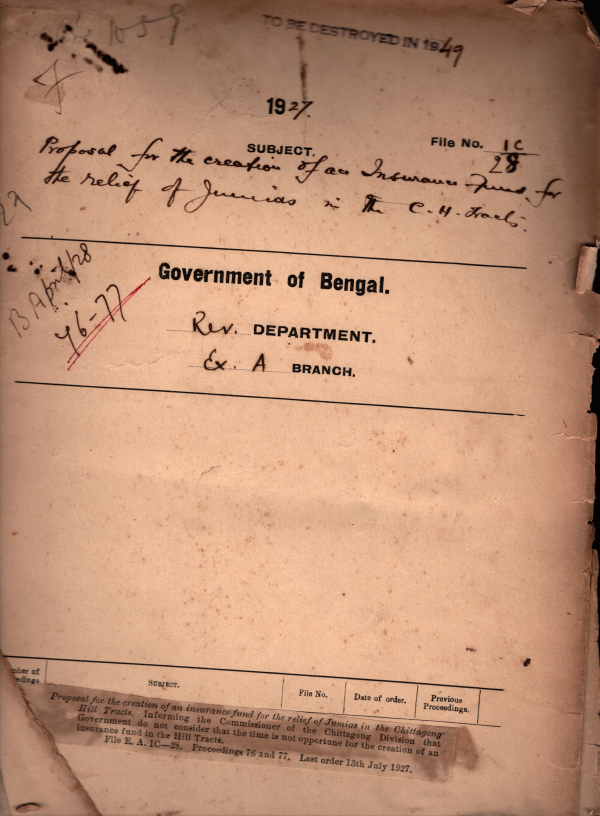 1059
TO BE DESTROYED IN 1949
1927.
SUBJECT.
File No. 1C/28
Proposal for the creation of an Insurance Fund for
the relief of Jumias in the C. H. Tracts.
Government of Bengal.
B April/28
76-77
Rev. DEPARTMENT.
Ex. A BRANCH.
SUBJECT.
File No.
Date of order.
Previous
Proceedings.
Proposal for the creation of an insurance fund for the relief of Jumias in the Chittagong
Hill Tracts. Informing the Commissioner of the Chittagong Division that
Government do not consider that the time is not opportune for the creation of an
insurance fund in the Hill Tracts.
File E. A. 1C—28. Proceedings 76 and 77. Last order 13th July 1927.